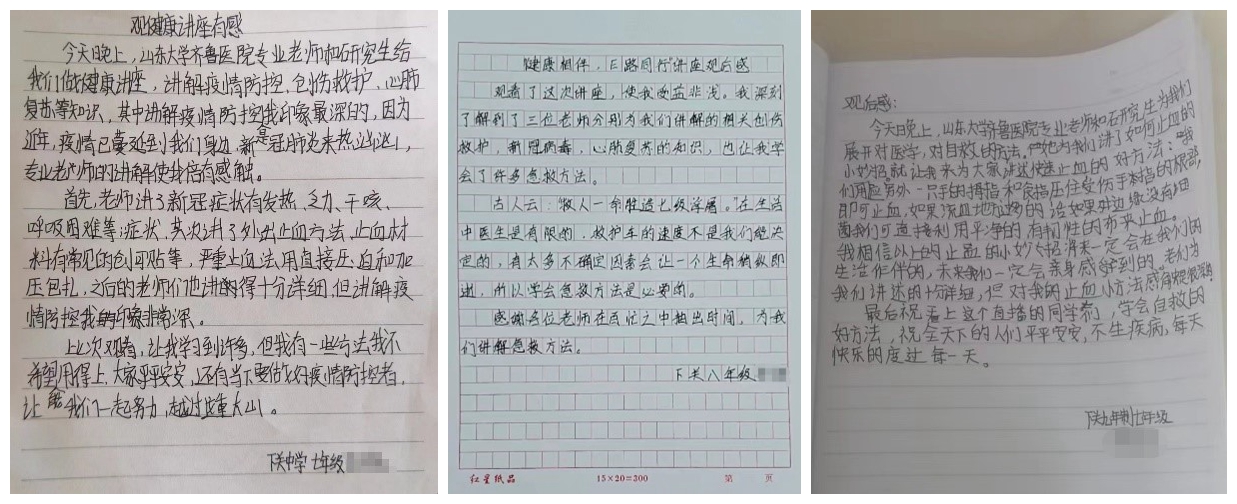 观健康讲座有感
今天晚上，山东大学齐鲁医院专业老师和研究生给
我们做健康讲座，讲解疫情防控、创伤救护、心肺
复苏等知识，其中讲解疫情防控我印象最深的，因为
近年，疫情已蔓延到我们身边，新冠肺炎来热汹汹，
专业老师的讲解使我倍有感触。
首先，老师讲了新冠症状有发热、乏力、干咳、
呼吸困难等症状，其次讲了外出止血方法，止血材
料有常见的创可贴等，严重止血法用直接压迫和加
压包扎，之后的老师们也讲的得十分详细，但讲解疫
情防控我印象非常深。
上次观看，让我学习到许多，但我有一些方法我不
希望用得上，大家平平安安，还有当下要做好疫情防控者，
让我们一起努力，越过这重大山。
下关中学 七年级
健康相伴，E路同行讲座观后感
观看了这次讲座，使我受益非浅。我深刻
了解到了三位老师分别为我们讲解的相关创伤
救护，新冠病毒，心肺复苏的知识，也让我学
会了许多急救方法。
古人云：“救人一命胜造七级浮屠。”在生活
中医生是有限的，救护车的速度不是我们能决
定的，有太多不确定因素会让一个生命稍纵即
逝，所以学会急救方法是必要的。
感谢各位老师在百忙之中抽出时间，为我
们讲解急救方法。
下关八年级
红星纸品
15×20=300
第 页
观后感：
今天晚上，山东大学齐鲁医院专业老师和研究生为我们
展开对医学，对自救的方法。他为我们讲了如何止血的
小妙招，就让我来为大家讲述快速止血的好方法：我
们用应另外一只手的拇指和食指压住受伤手指的根部，
即可止血，如果流血地方多的话如果身边没有
我们可直接利用平净的有韧性的布来止血。
我相信以上的止血的小妙招将来一定会在我们的
生活作伴的，未来我们一定会亲身感受到的，老师为
我们讲述的十分详细，但对我的止血小方法感触很
最后祝看上这个直播的同学们，学会自救的
好方法，祝全天下的人们平平安安，不生疾病，每天
快乐的度过每一天。
下关九年制七年级